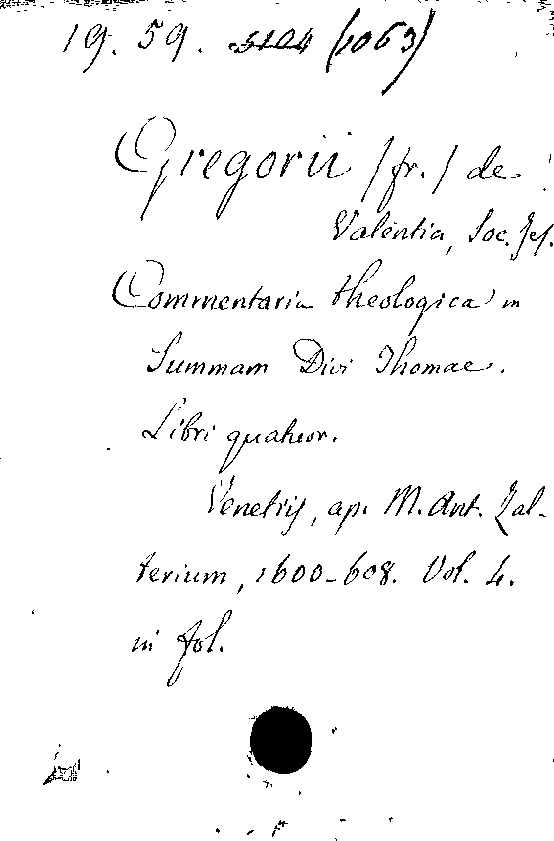 19. 59. 5104 (1063)
Gregorii /fr./ de
Valentia, Soc. Jes.
Commentaria theologica in
Summam Divi Thomae.
Libri quatuor.
Venetiis, ap. M. Ant. Zal-
terium, 1600-608. Vol. 4.
in fol.